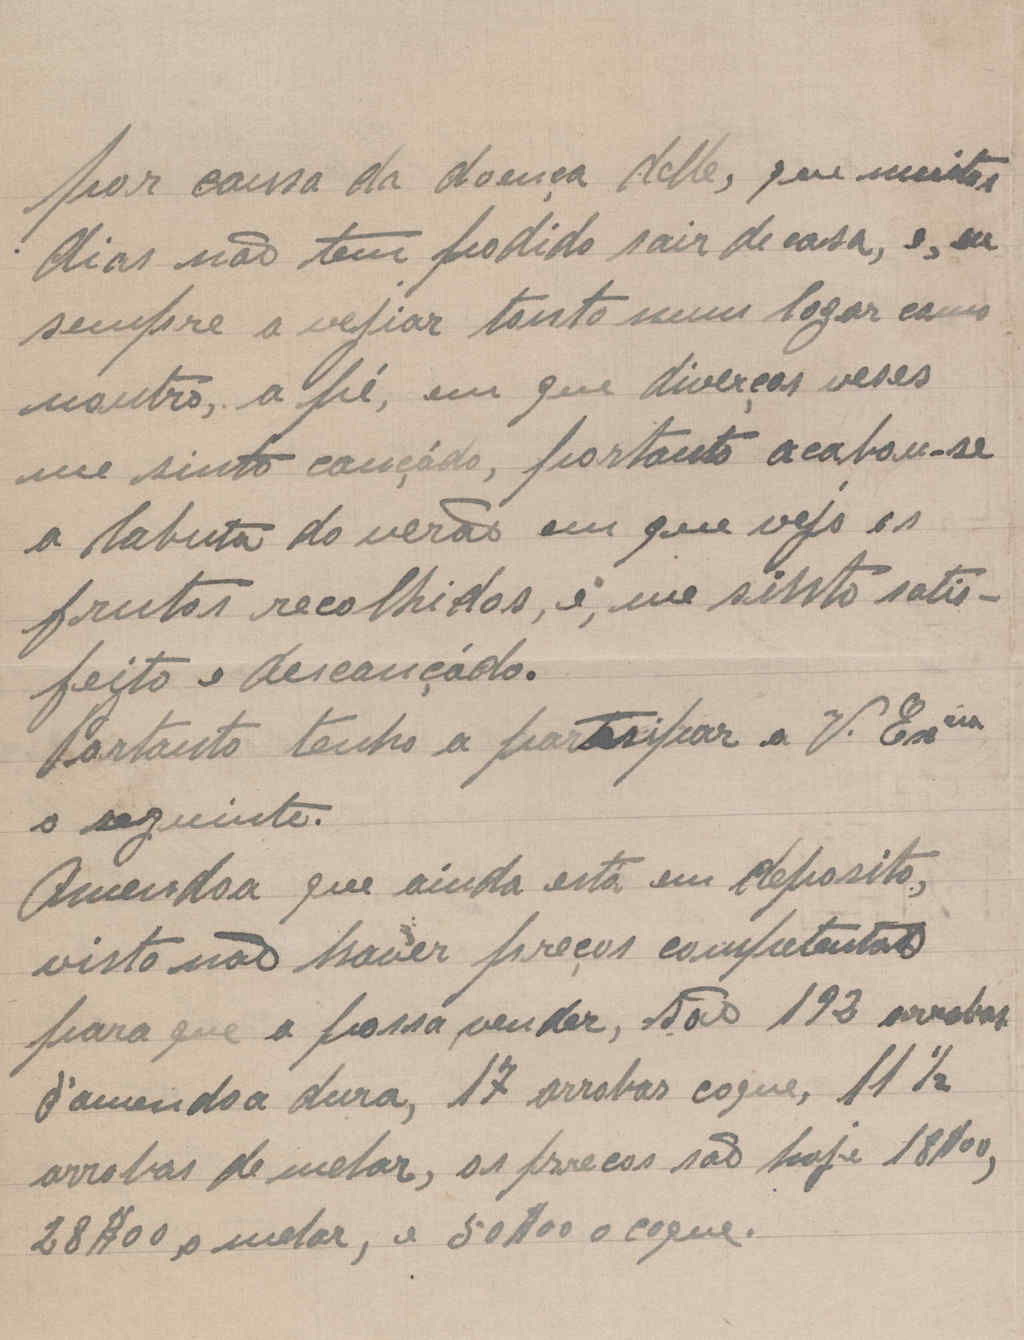 por causa da doença delle, que muitos
dias não tem podido sair de casa, e, eu
sempre a vejiar tanto num logar como
noutro, a pé, em que diverças veses
me sinto cançádo, portanto acabou-se
a labuta do verão em que vejo os
frutos recolhidos, e, me sinto satis-
feito e descançádo.
Portanto tenho a partisipar a V. Excia
o seguinte.
Amendoa que ainda está em deposito,
visto não haver preços
para que a possa vender, são 192 arrobas
d'amendoa dura, 17 arrobas coque, 11 1/2
arrobas de molar, os precos são hoje 18$00,
28$00, o molar, e 50$00 o coque.